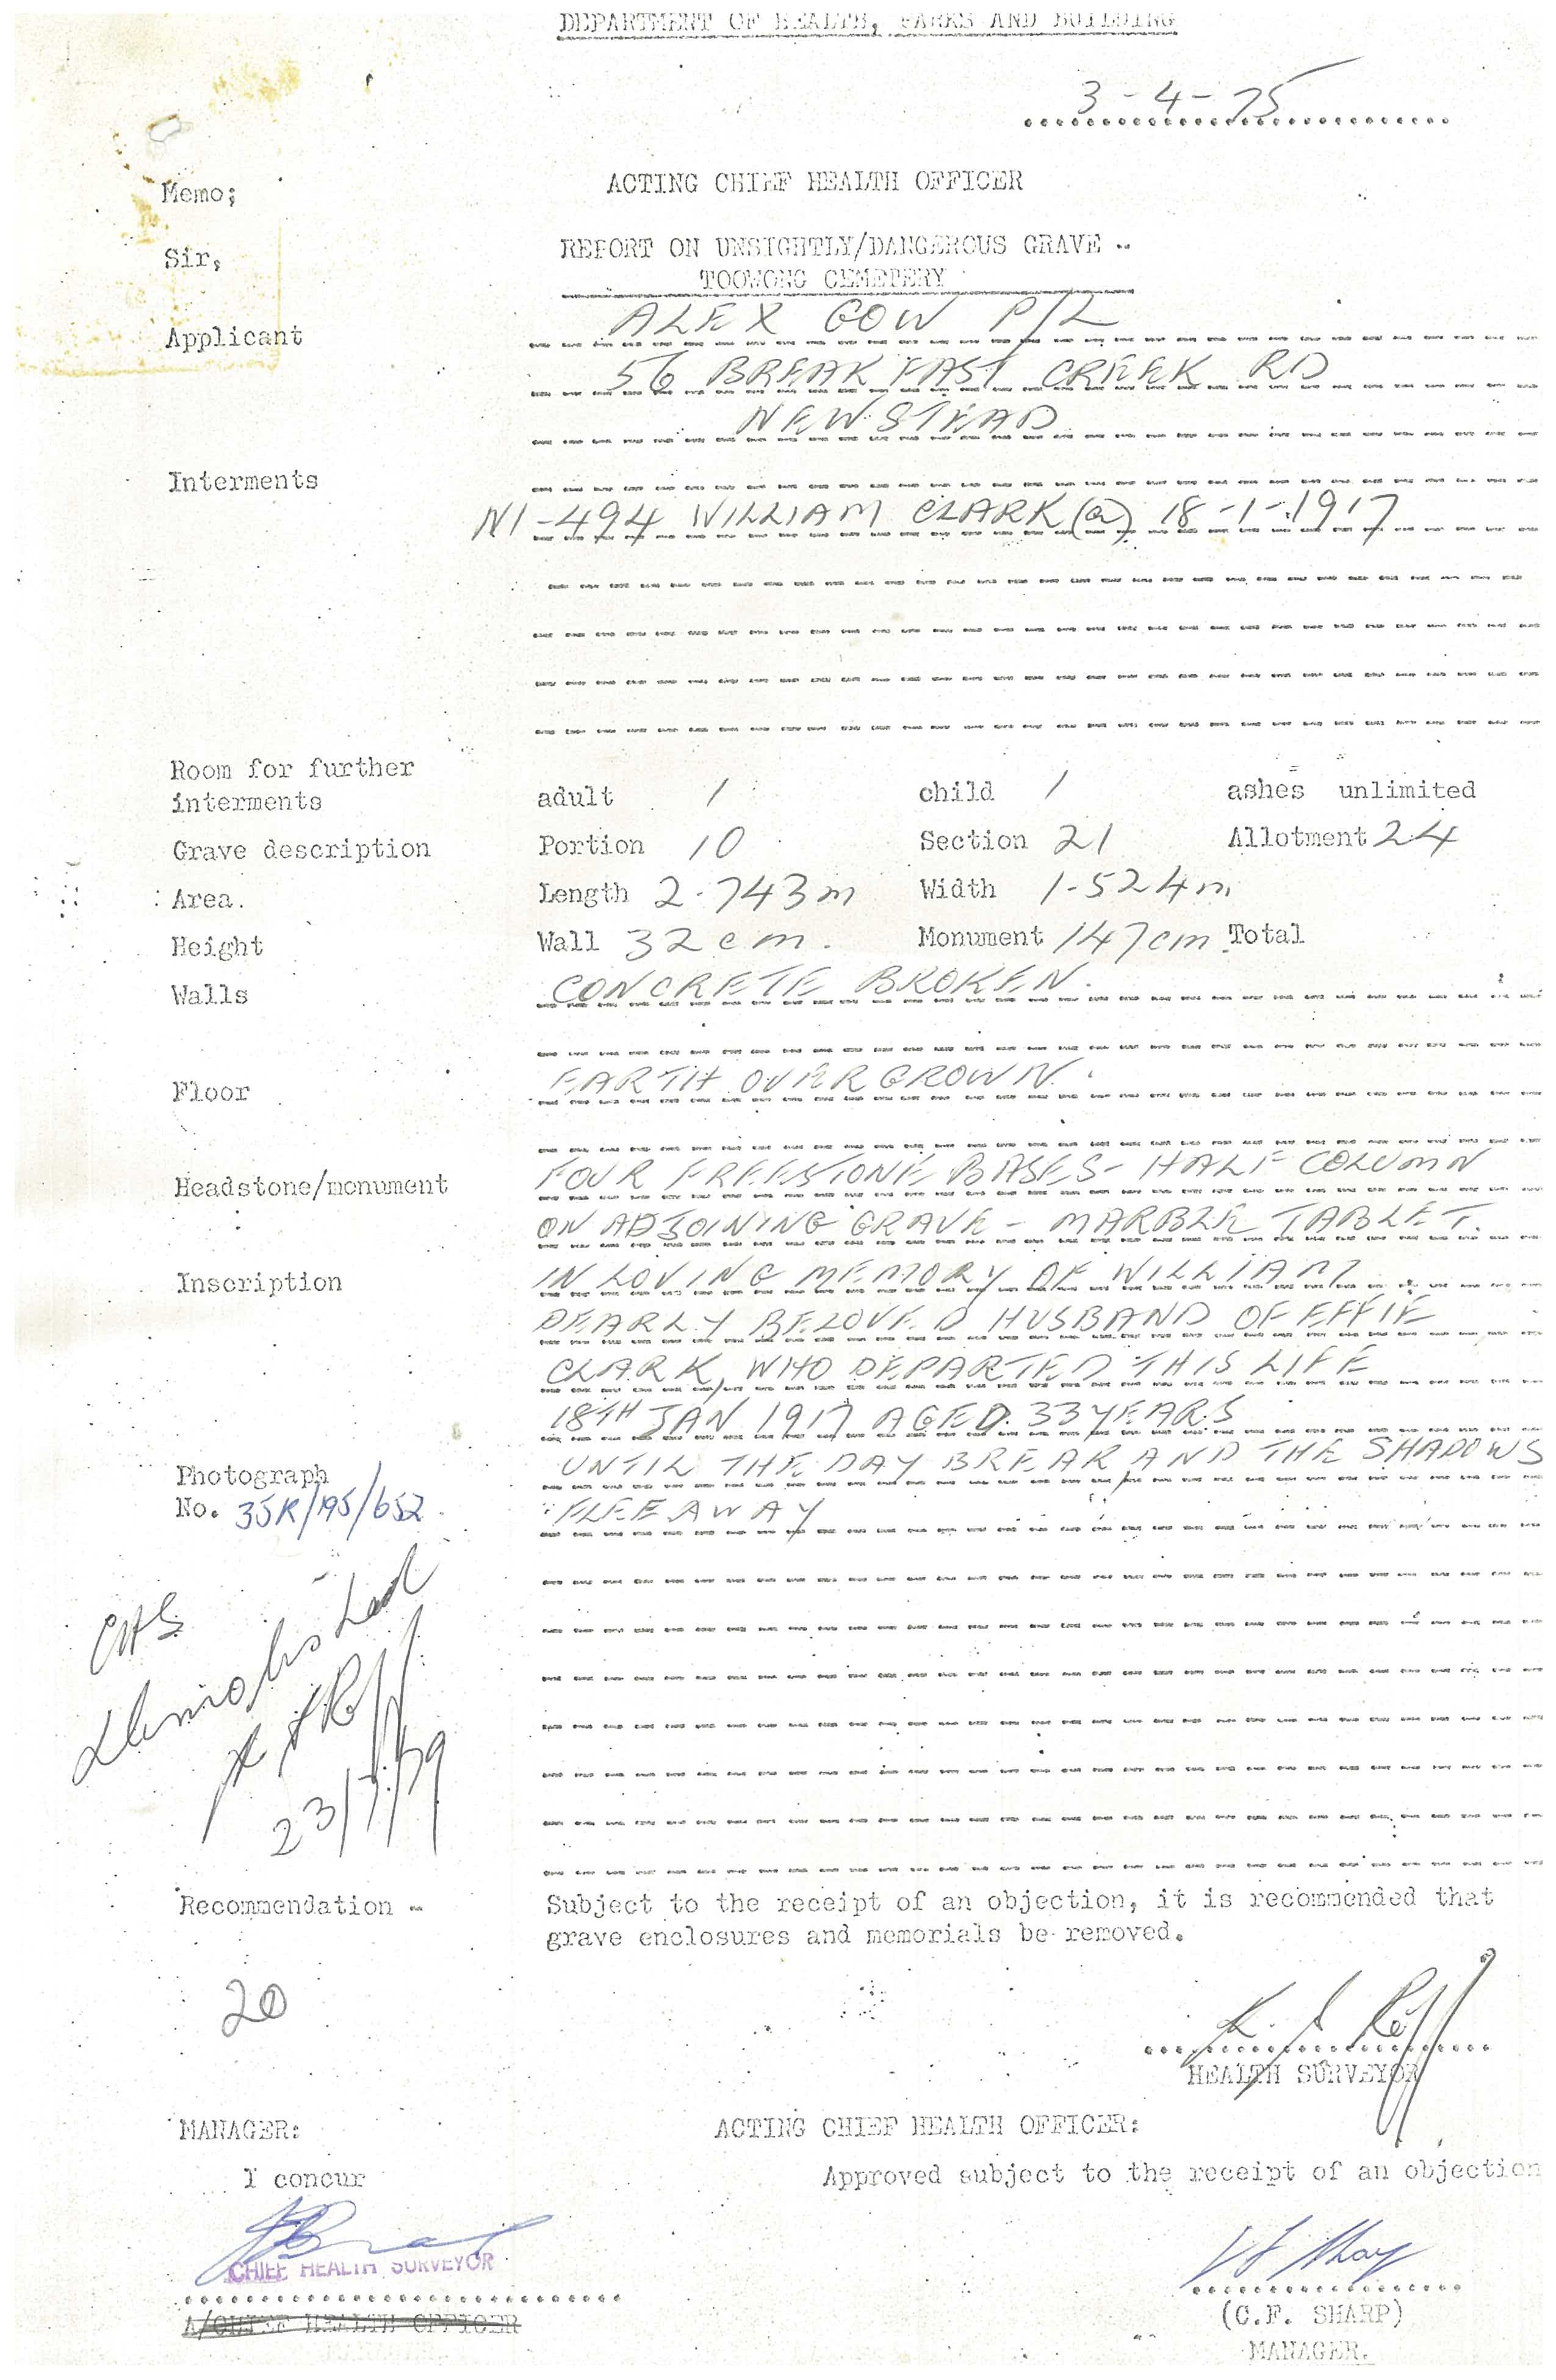 DEPARTMENT OF HEALTH, PARKS AND BUILDING
3-4-75
Memo; ACTING CHIEF HEALTH OFFICER
Sir, REPORT ON UNSIGHTLY/DANGEROUS GRAVE -
TOOWONG CEMETERY
Applicant ALEX GOW P/L
56 BREAKFAST CREEK RD
NEWSTEAD
Interments
N1-494 WILLIAM CLARK (a) 18-1-1917
Room for further
interments adult 1 child 1 ashes unlimited
Grave description Portion 10 Section 21 Allotment 24
Area. Length 2.743m Width 1.524m
Height Wall 32cm. Monument 147cm Total
Walls CONCRETE BROKEN.
Floor EARTH OVERGROWN.
Headstone/monument FOUR FREESTONE BASES- HALF COLUMN
ON ADJOINING GRAVE - MARBLE TABLET.
Inscription IN LOVING MEMORY OF WILLIAM
DEARLY BELOVED HUSBAND OF EFFIE
CLARK, WHO DEPARTED THIS LIFE
18TH JAN 1917 AGED 33 YEARS
UNTIL THE DAY BREAK, AND THE SHADOWS
Photograph
No. 35R/195/652 FLEE AWAY
CHS
demolished
23/7/79
Recommendation - Subject to the receipt of an objection, it is recommended that
grave enclosures and memorials be removed.
20
HEALTH SURVEYOR
MANAGER: ACTING CHIEF HEALTH OFFICER:
I concur Approved subject to the receipt of an objection
CHIEF HEALTH SURVEYOR
A/CHIEF HEALTH OFFICER
(C.F. SHARP)
MANAGER.